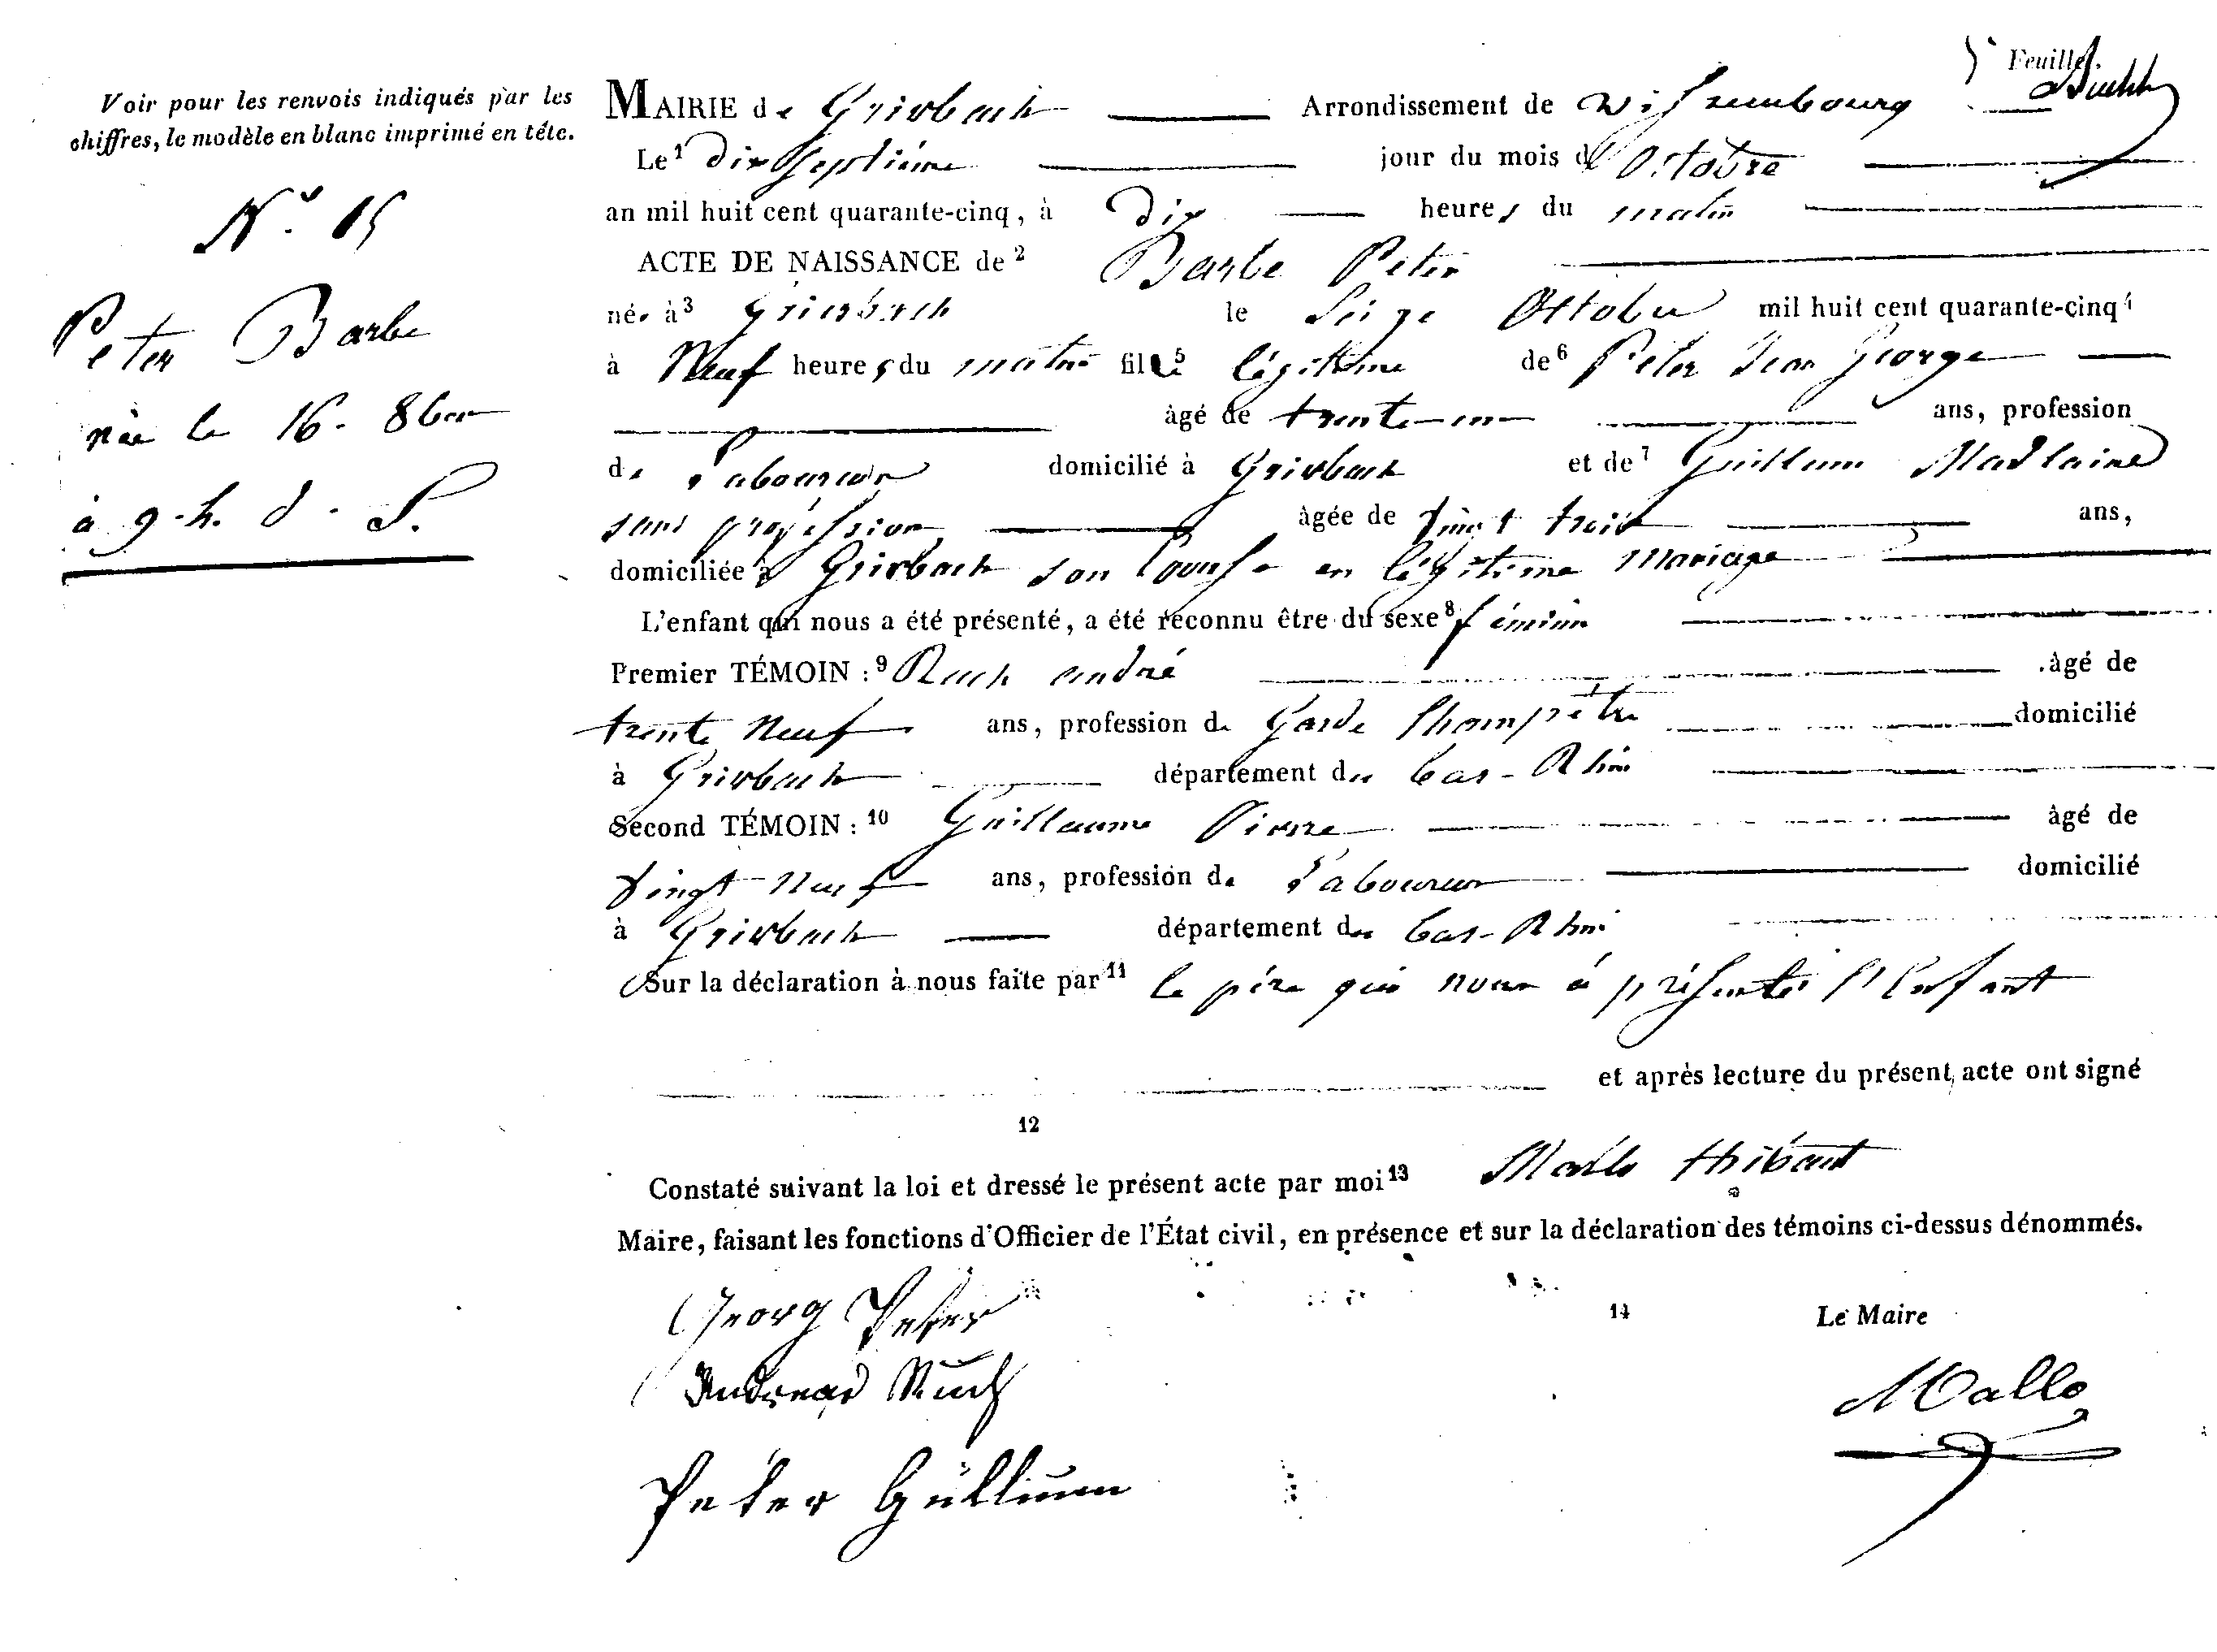 5e Feuille.
Voir pour les renvois indiqués par les
chiffres, le modèle en blanc imprimé en tête.
No. 15
Peter Barbe
née le 16. 8bre
à 9. h. d. S.
MAIRIE de Griesbach Arrondissement de Wissembourg
Le 1 dix septième jour du mois d'Octobre
an mil huit cent quarante-cinq, à Dix heures du matin
ACTE DE NAISSANCE de 2 Barbe Peter
née à 3 Griesbach le Seize Octobre mil huit cent quarante-cinq 4
à Neuf heures du matin fille 5 légitime de 6 Peter Jean George
âgé de trente-un ans, profession
de Laboureur domicilié à Griesbach et de 7 Guillaume Madlaine
sans profession âgée de vingt trois ans,
domiciliée à Griesbach son Epouse en légitime mariage
L'enfant qui nous a été présenté, a été reconnu être du sexe 8 féminin
Premier TÉMOIN : 9 Ruch André âgé de
trente Neuf ans, profession de Garde Champêtre domicilié
à Griesbach département du bas-Rhin
Second TÉMOIN : 10 Guillaume Pierre âgé de
vingt-neuf ans, profession de Laboureur domicilié
à Griesbach département du bas-Rhin
Sur la déclaration à nous faite par 11 le père qui nous a présenté l'Enfant
et après lecture du présent acte ont signé
12
Constaté suivant la loi et dressé le présent acte par moi 13 Mallo thibaut
Maire, faisant les fonctions d'Officier de l'État civil, en présence et sur la déclaration des témoins ci-dessus dénommés.
14 Le Maire
Georg Peter
Andreas Ruch
Mallo
Peter Güllium